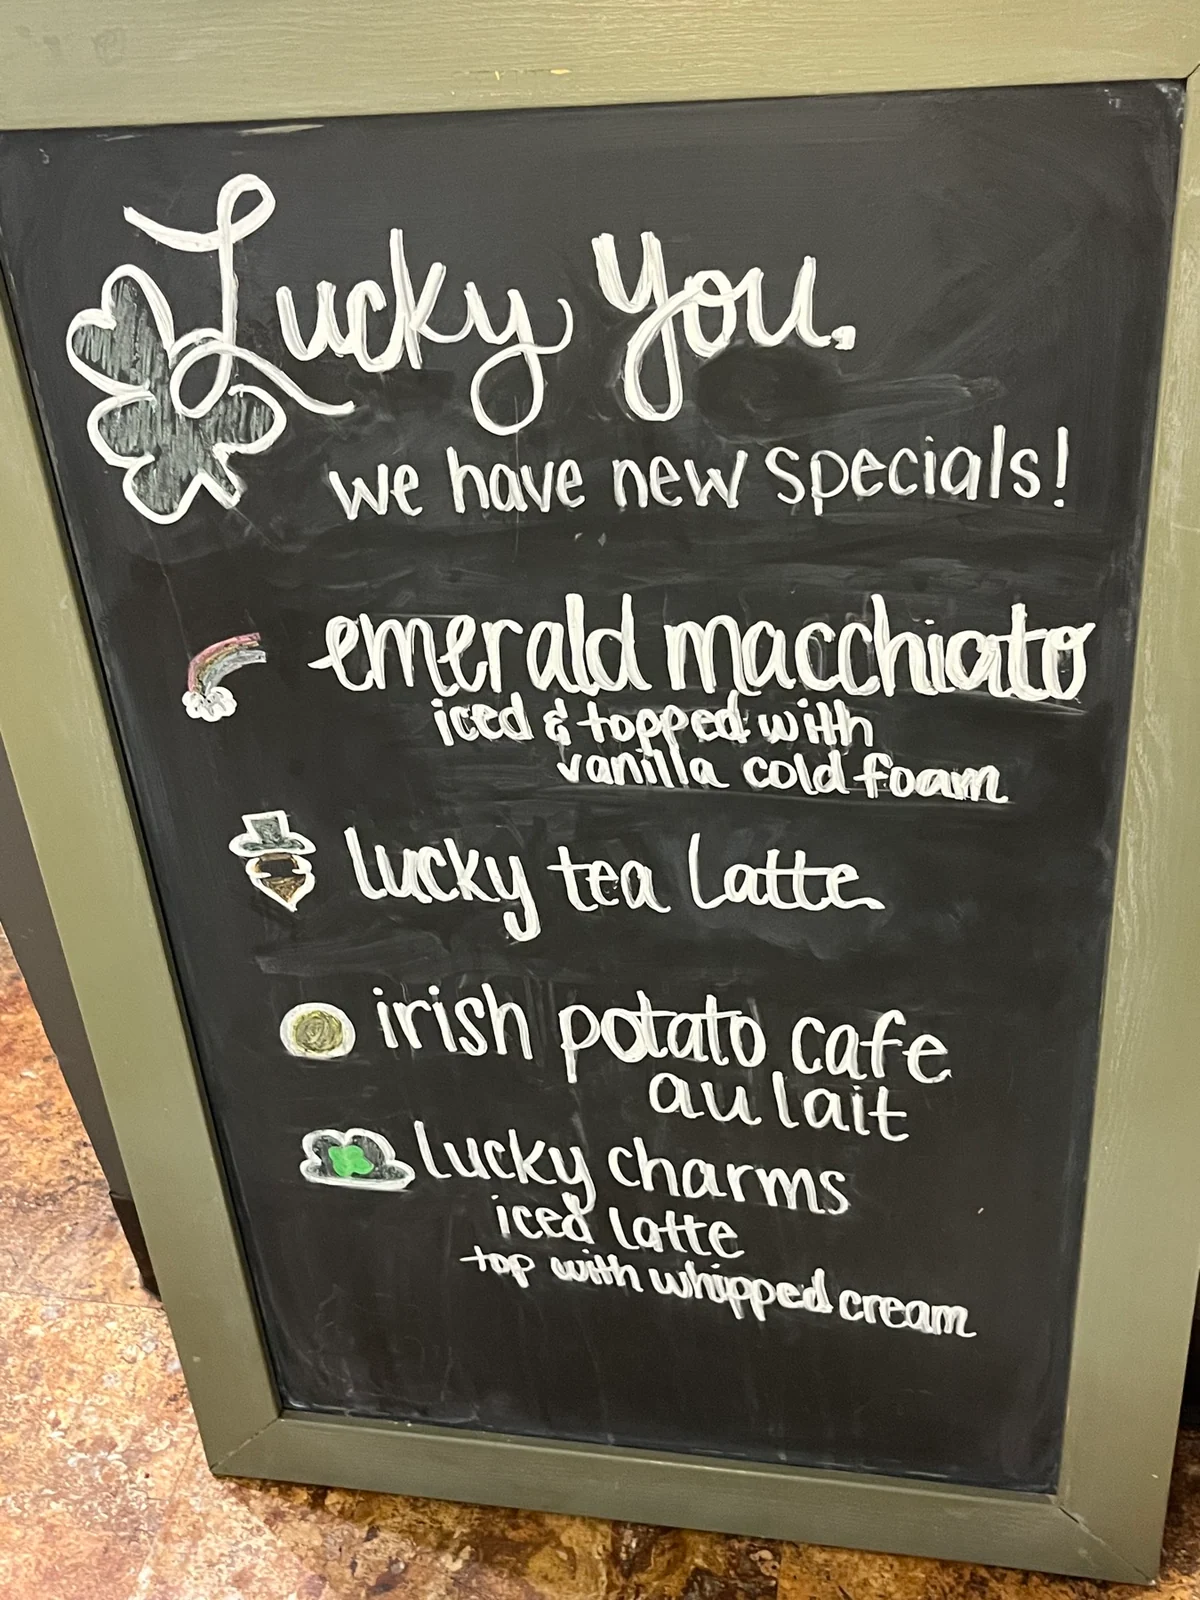 Lucky You.
we have new specials!
emerald macchiato
iced & topped with
vanilla cold foam
lucky tea latte
irish potato cafe
au lait
lucky charms
iced latte
top with whipped cream